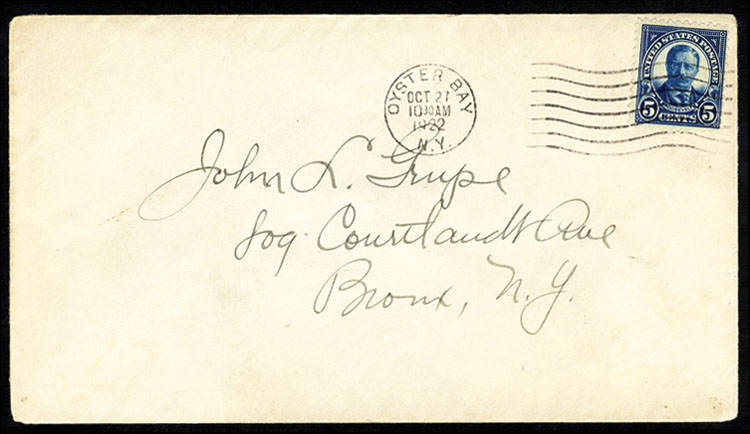 UNITED STATES POSTAGE
5 CENTS 5
OYSTER BAY
OCT 27
10 30 AM
1922
N.Y.
John L. Grupe
809 Courtlandt Ave
Bronx, N.Y.